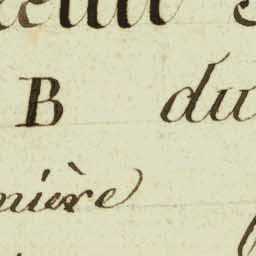 B du
nière